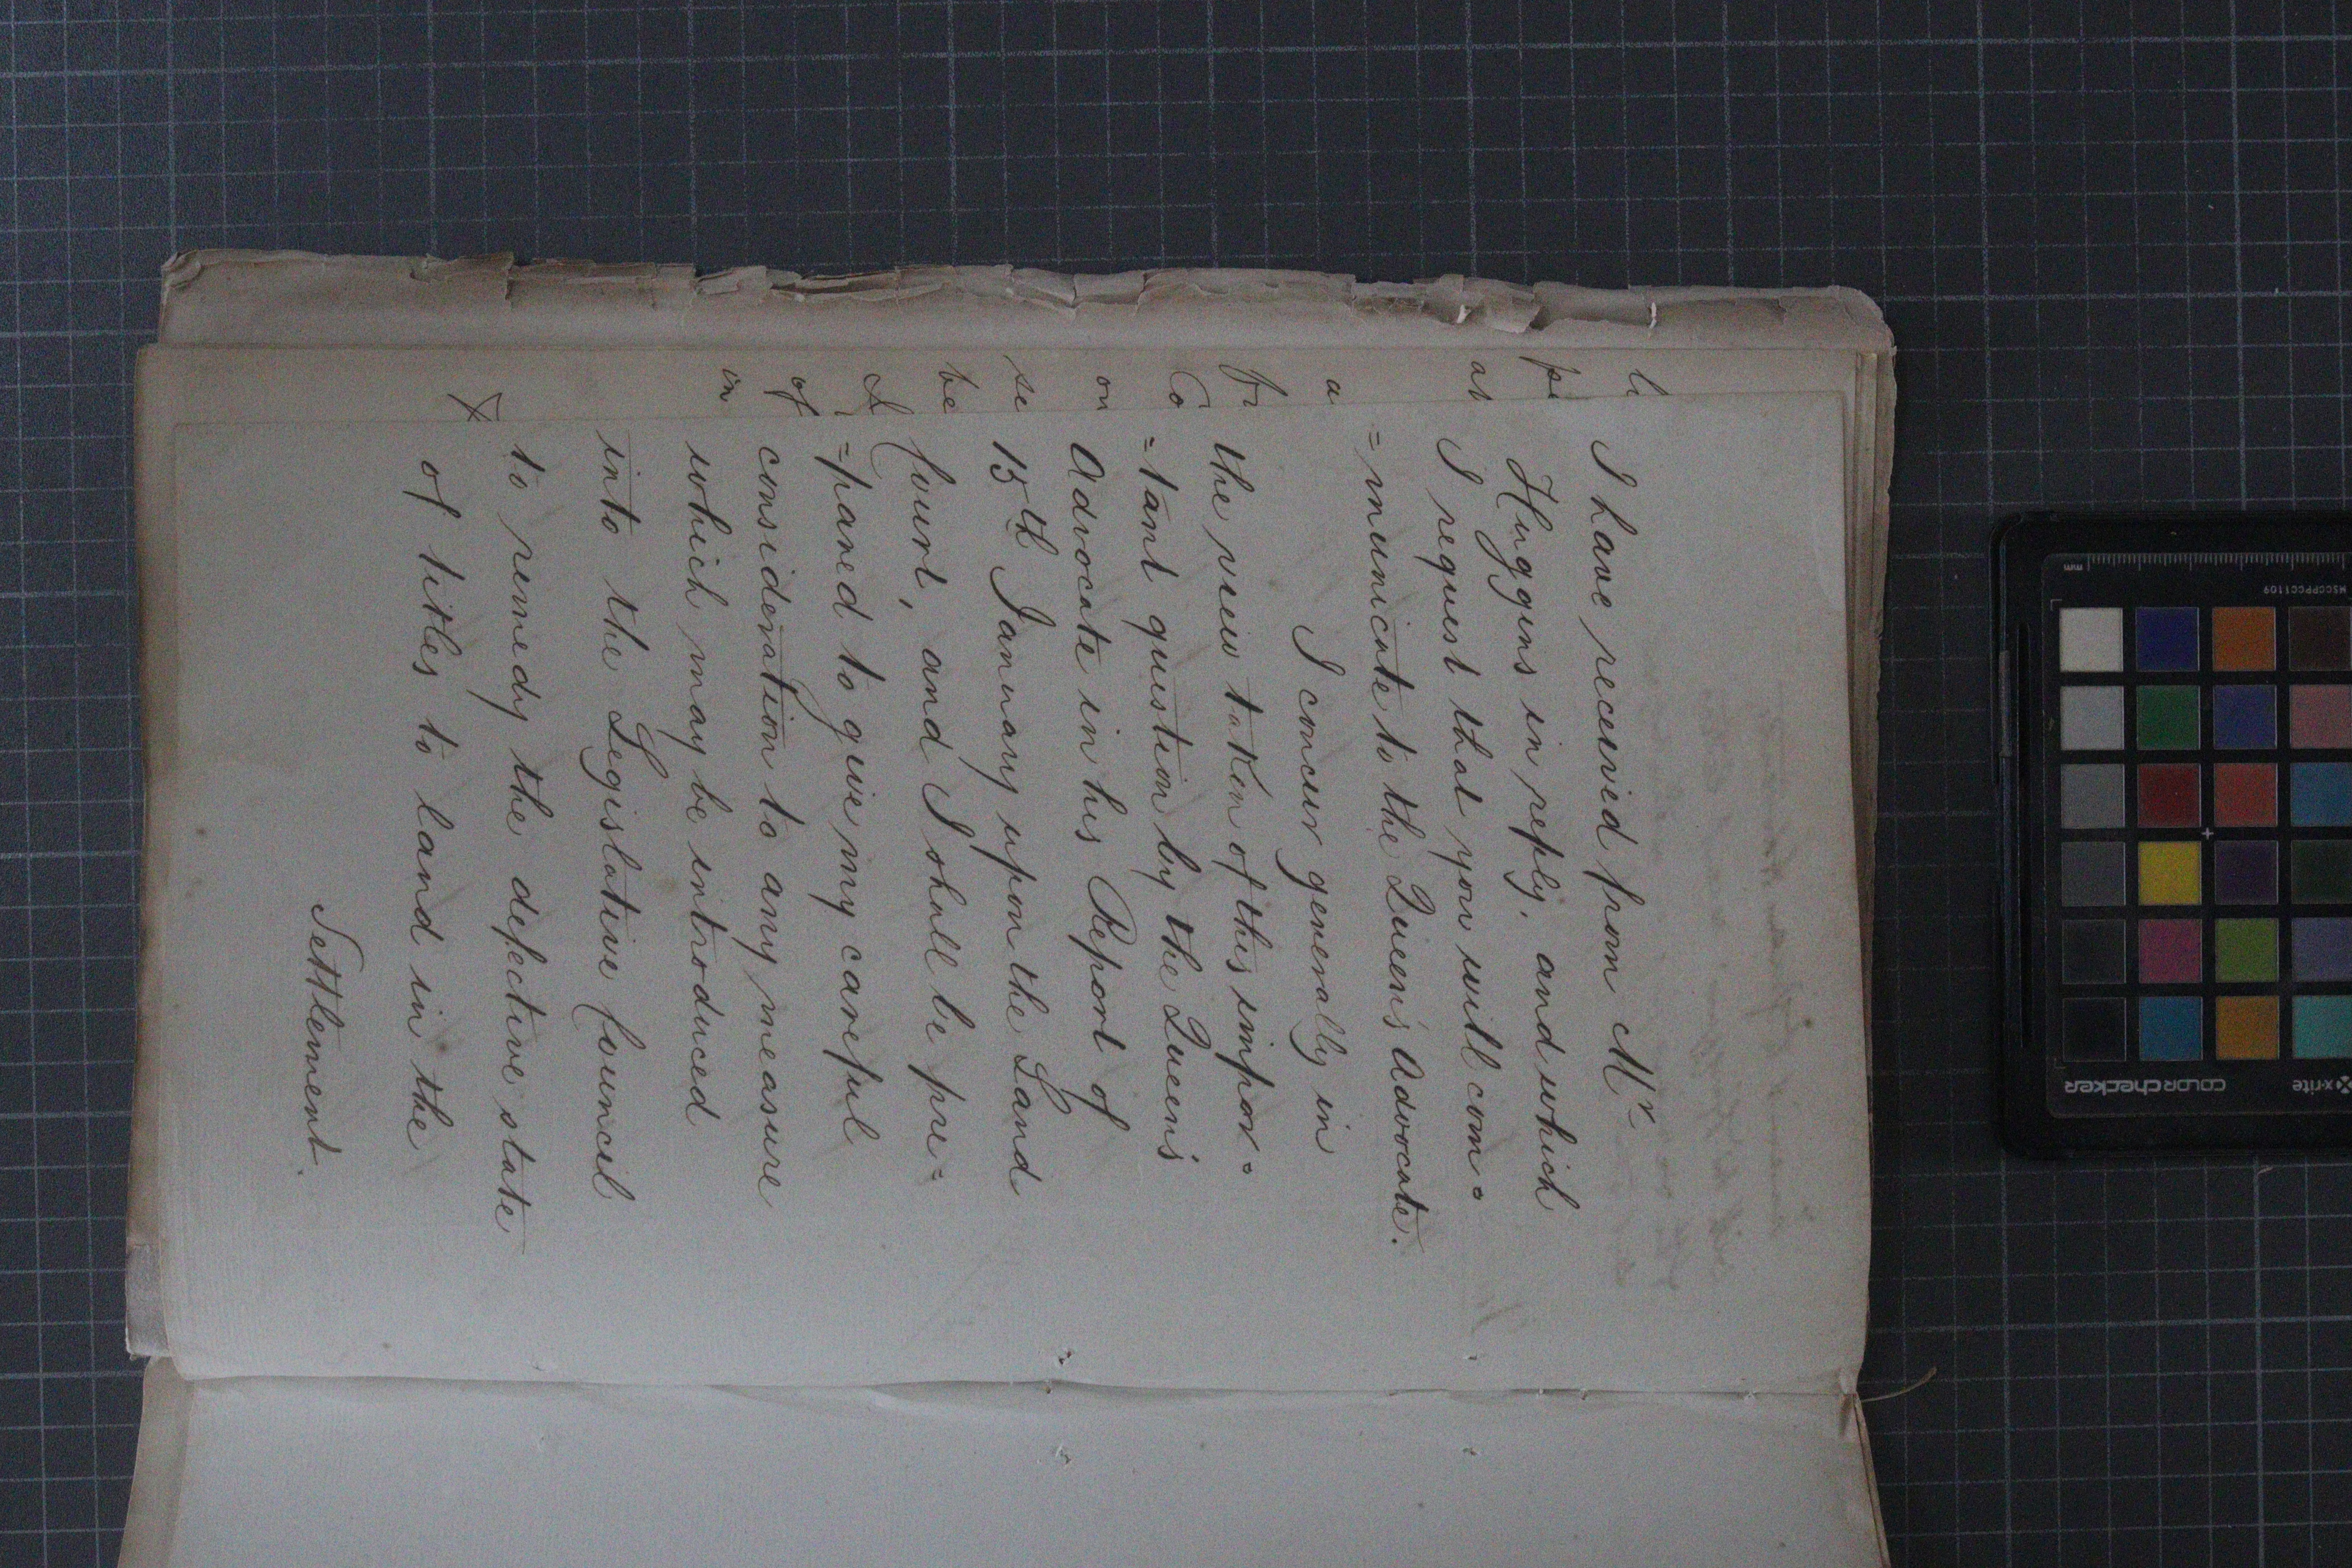 I have received from Mr
Huggins in reply, and which
I request that you will com=
=municate to the Queen's Advocate.
I concur generally in
the view taken of this impor=
=tant question by the Queen's
Advocate in his Report of
15th January upon the Land
Court, and I shall be pre=
=pared to give my careful
consideration to any measure
which may be introduced
into the Legislative Council
to remedy the defective state
of titles to land in the
Settlement.
l
pe
as
a
fr
Co
on
se
be
of
in
mm
MSCCPPCC1109
x-rite
colorchecker